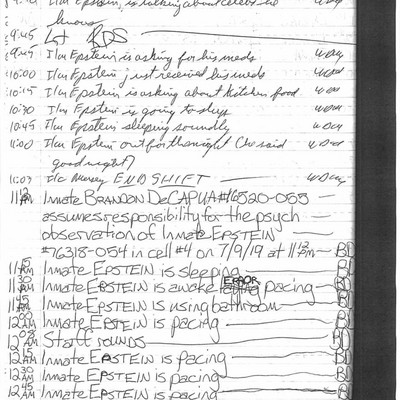 I/m Epstein, is talking about celebs he
knows
9:45 RDS
9:45 I/m Epstein is asking for his meds
10:00 I/m Epstein, just received his meds
10:15 I/m Epstein is asking about kitchen food
10:30 I/m Epstein is going to sleep
10:45 I/m Epstein sleeping soundly
11:00 I/m Epstein out for the night (he said
goodnight)
11:03 END SHIFT
11:12 PM Inmate BRANDON DeCAPUA #16520-055
assumes responsibility for the psych
observation of Inmate EPSTEIN
#76318-054 in cell #4 on 7/9/19 at 11:12pm BD
11:15 PM Inmate EPSTEIN is sleeping BD
11:30 PM Inmate EPSTEIN is awake ERROR pacing BD
11:45 PM Inmate EPSTEIN is using bathroom BD
12:00 AM Inmate EPSTEIN is pacing BD
12:08 AM Staff rounds BD
12:15 AM Inmate EPSTEIN is pacing BD
12:30 AM Inmate EPSTEIN is pacing BD
12:45 AM Inmate EPSTEIN is pacing BD